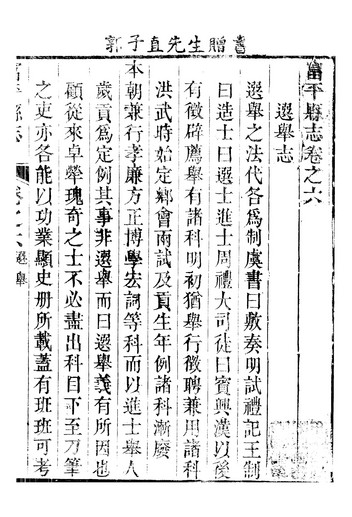 郭子直先生贈書
富平縣志卷之六
選舉志
選舉之法代各爲制虞書曰敷奏明試禮記王制
曰造士曰選士進士周禮大司徒曰賓興漢以後
有徵辟薦舉有諸科明初猶舉行徵聘兼用諸科
洪武時始定鄉會兩試及貢生年例諸科漸廢
本朝兼行孝廉方正博學宏詞等科而以進士舉人
歲貢爲定例其事非選舉而曰選舉義有所因也
顧從來卓犖瑰奇之士不必盡出科目下至刀筆
之吏亦各能以功業顯史册所載蓋有班班可考
富平縣志
卷之六 選舉